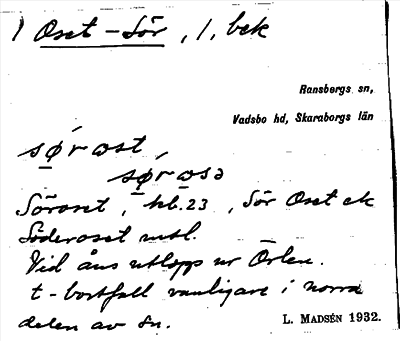 1 Oset - Sör, 1, bek
Ransbergs sn,
Vadsbo hd, Skaraborgs län
sǿr ɷst,
sǿr ɷsə
Söroset, hb. 23, Sör Oset ek
Söderoset mtl.
Vid åns utlopp ur Örlen.
t-bortfall vanligare i norra
delen av sn.
L. MADSÉN 1932.